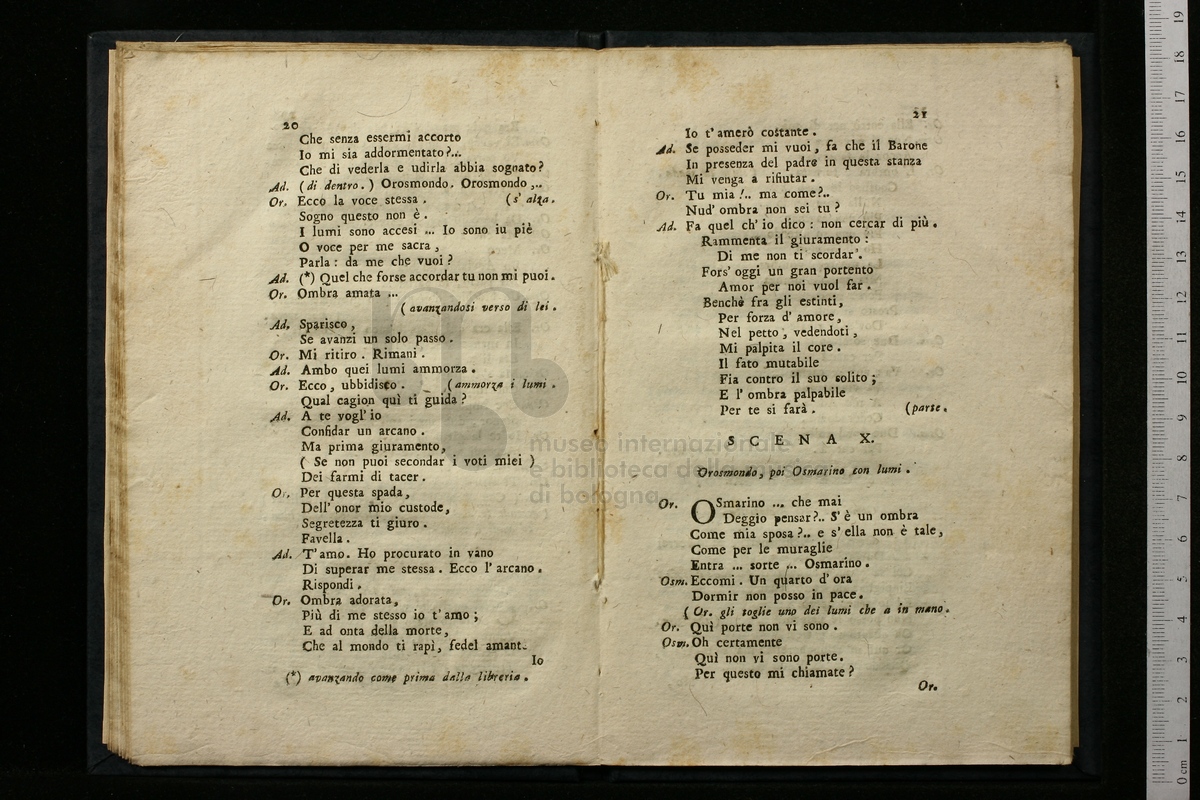 20
Che senza essermi accorto
Io mi sia addormentato?...
Che di vederla e udirla abbia sognato?
Ad. (di dentro.) Orosmondo. Orosmondo ,..
Or. Ecco la voce stessa . (s' alza.
Sogno questo non è .
I lumi sono accesi ... Io sono iu piè
O voce per me sacra ,
Parla : da me che vuoi ?
Ad. (*) Quel che forse accordar tu non mi puoi.
Or. Ombra amata ...
( avanzandosi verso di lei .
Ad. Sparisco ,
Se avanzi un solo passo .
Or. Mi ritiro . Rimani .
Ad. Ambo quei lumi ammorza .
Or. Ecco , ubbidisco . (ammorza i lumi .
Qual cagion quì ti guida ?
Ad. A te vogl' io
Confidar un arcano .
Ma prima giuramento,
( Se non puoi secondar i voti miei )
Dei farmi di tacer .
Or. Per questa spada,
Dell' onor mio custode,
Segretezza ti giuro .
Favella .
Ad. T'amo. Ho procurato in vano
Di superar me stessa . Ecco l' arcano .
Rispondi .
Or. Ombra adorata,
Più di me stesso io t'amo ;
E ad onta della morte,
Che al mondo ti rapì, fedel amant.
Io
(*) avanzando come prima dalla libreria .
21
Io t' amerò costante .
Ad. Se posseder mi vuoi, fa che il Barone
In presenza del padre in questa stanza
Mi venga a rifiutar .
Or. Tu mia !.. ma come?..
Nud' ombra non sei tu ?
Ad. Fa quel ch' io dico : non cercar di più .
Rammenta il giuramento :
Di me non ti scordar'.
Fors' oggi un gran portento
Amor per noi vuol far .
Benchè fra gli estinti,
Per forza d' amore,
Nel petto , vedendoti ,
Mi palpita il core .
Il fato mutabile
Fia contro il suo solito ;
E l' ombra palpabile
Per te si farà . (parte.
SCENA X.
Orosmondo, poi Osmarino con lumi .
Or. OSmarino ... che mai
Deggio pensar?.. S' è un ombra
Come mia sposa ?.. e s' ella non è tale,
Come per le muraglie
Entra ... sorte ... Osmarino .
Osm. Eccomi . Un quarto d' ora
Dormir non posso in pace .
( Or. gli toglie uno dei lumi che a in mano.
Or. Quì porte non vi sono .
Osm. Oh certamente
Quì non vi sono porte.
Per questo mi chiamate ?
Or.
museo internazionale
e biblioteca della musica
di bologna